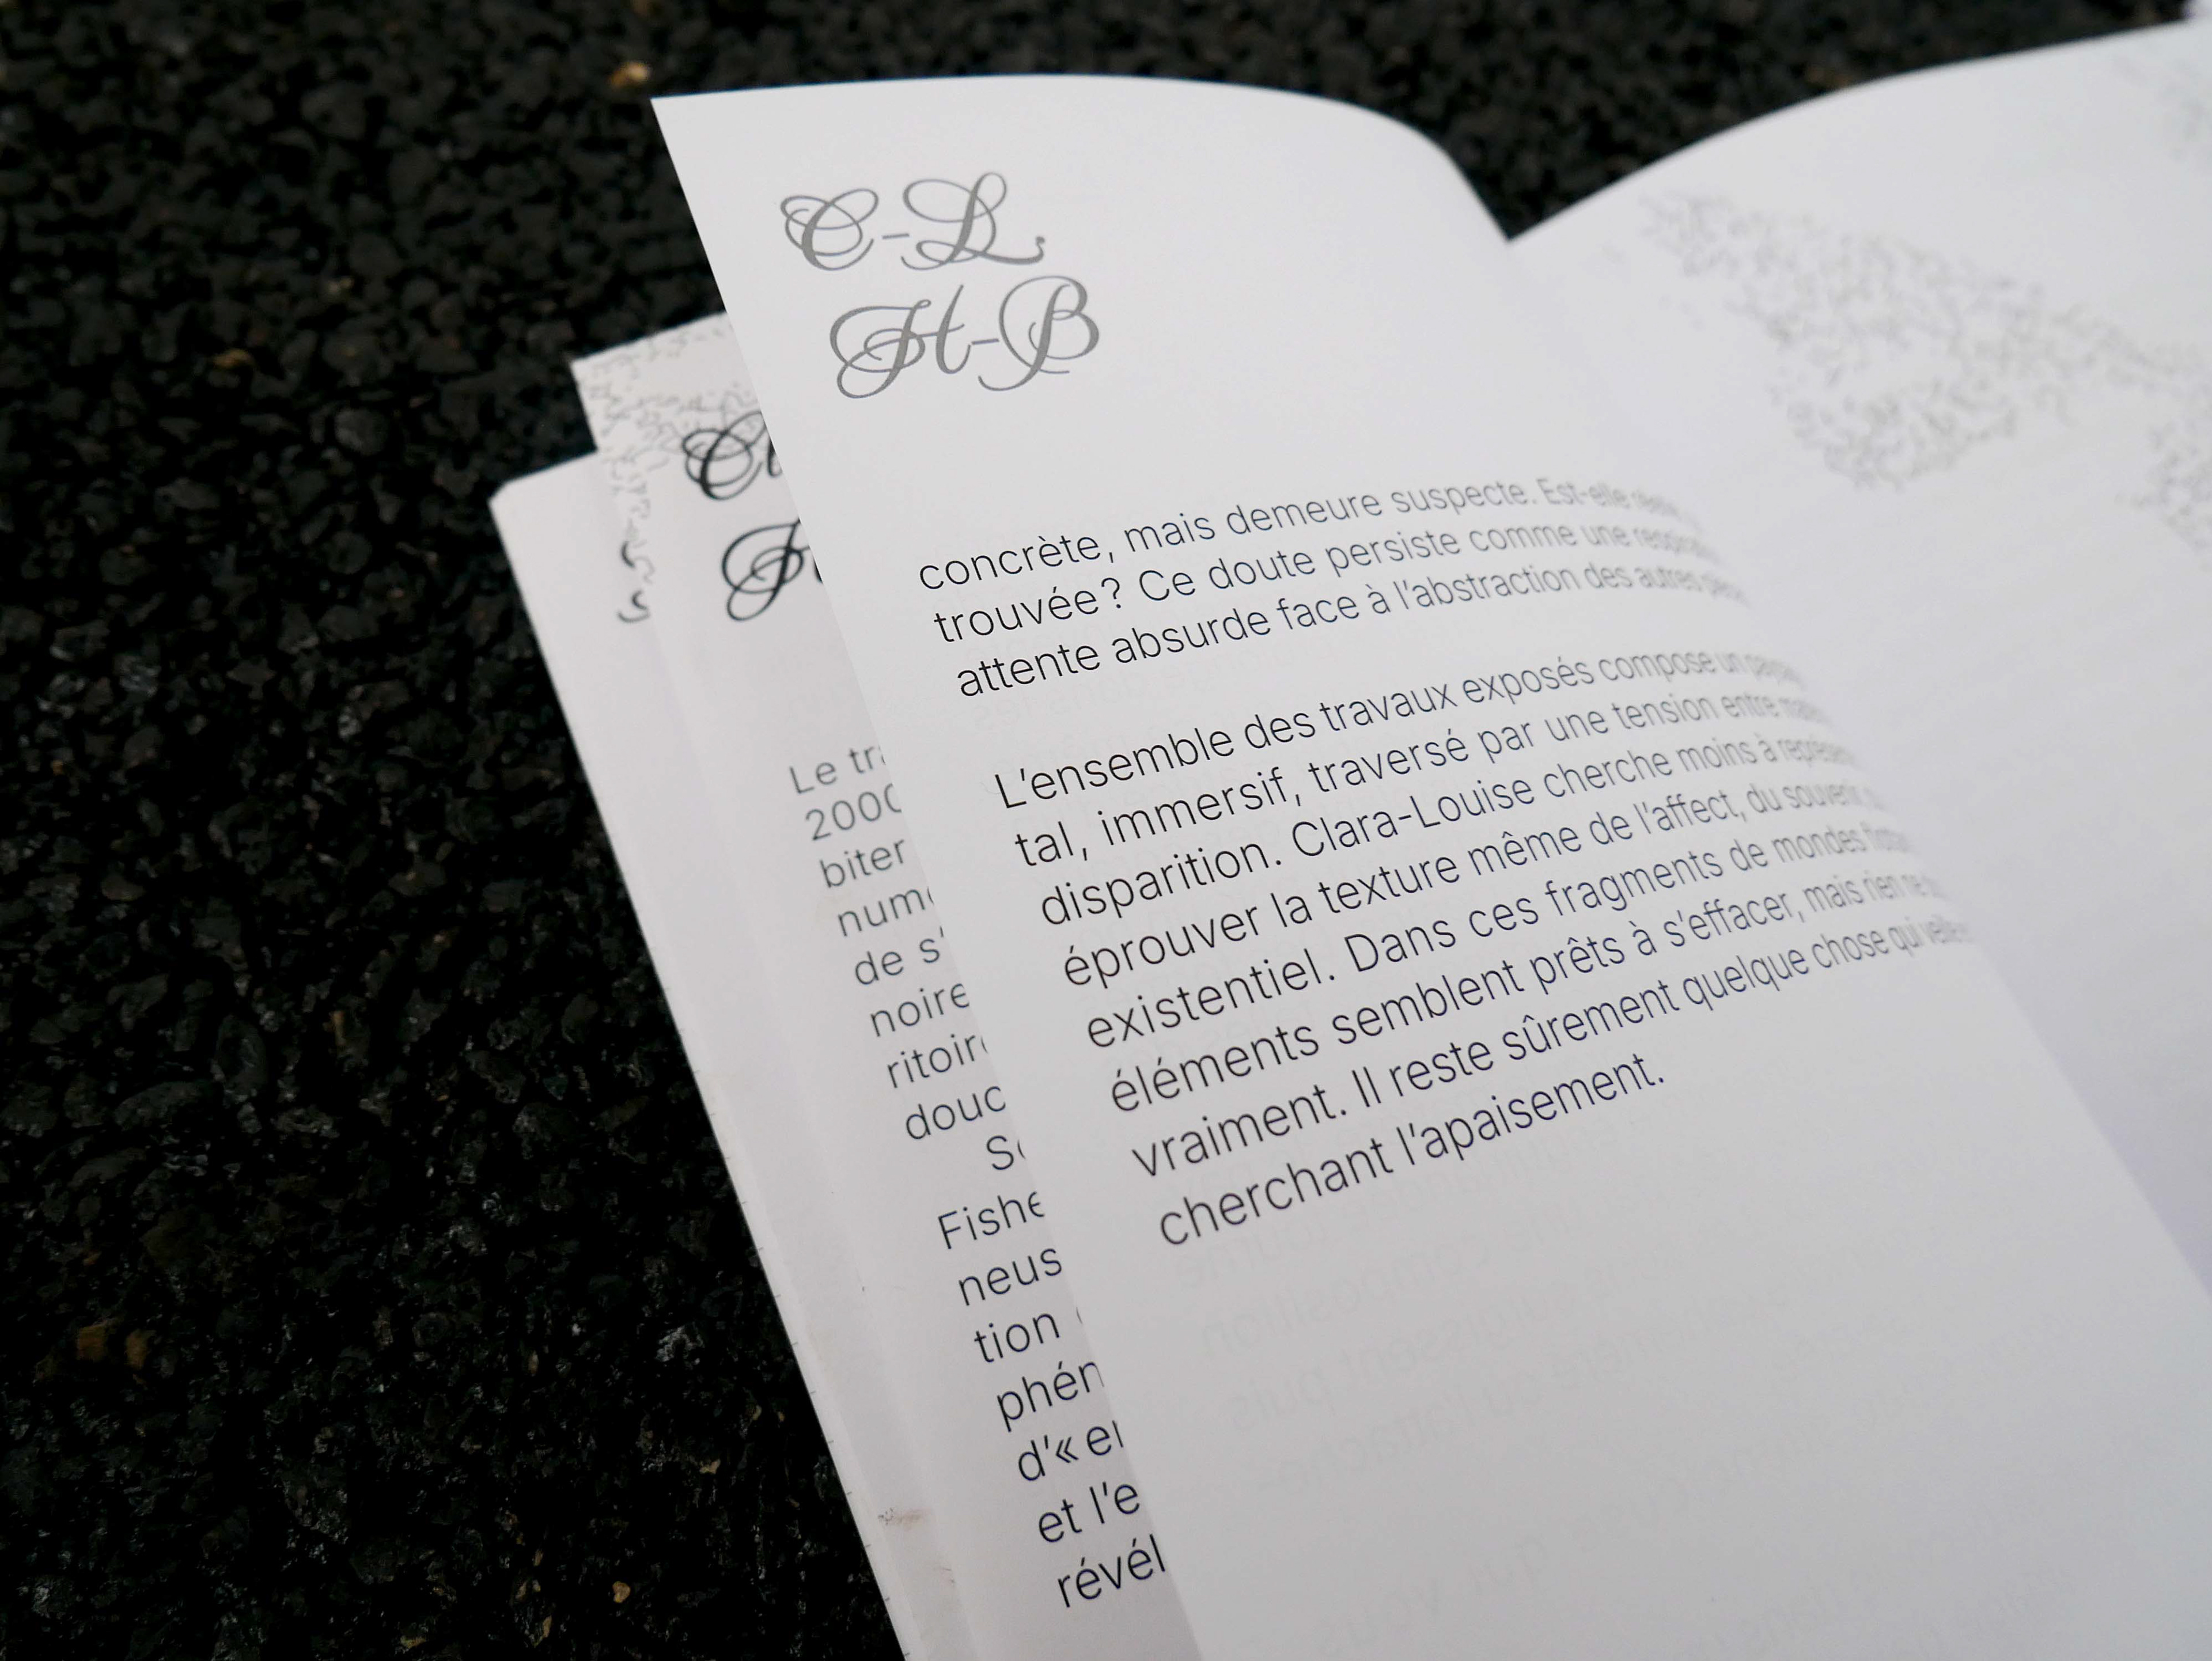 C-L
H-B
concrète, mais demeure suspecte. Est-elle
trouvée? Ce doute persiste comme une
attente absurde face à l'abstraction des autres
L'ensemble des travaux exposés compose un
tal, immersif, traversé par une tension entre
disparition. Clara-Louise cherche moins à
éprouver la texture même de l'affect, du souvenir
existentiel. Dans ces fragments de mondes
éléments semblent prêts à s'effacer, mais rien ne
vraiment. Il reste sûrement quelque chose qui veille
cherchant l'apaisement.
Le
2000
biter
de s'
noire
Fishe
neus
tion
d'«
et l'e
révél